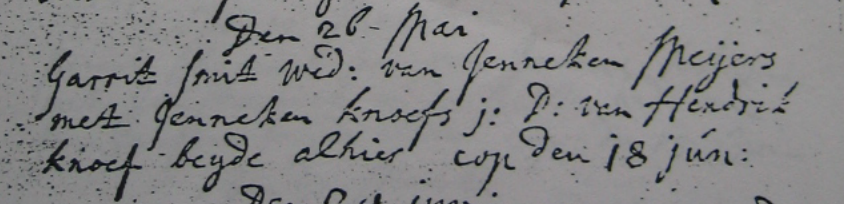 Den 26 - Mai
Garrit Smit wed: van Jenneken Meijers
met Jenneken knoefs j: D: van Hendrik
knoef beyde alhier cop den 18 jún:
Den